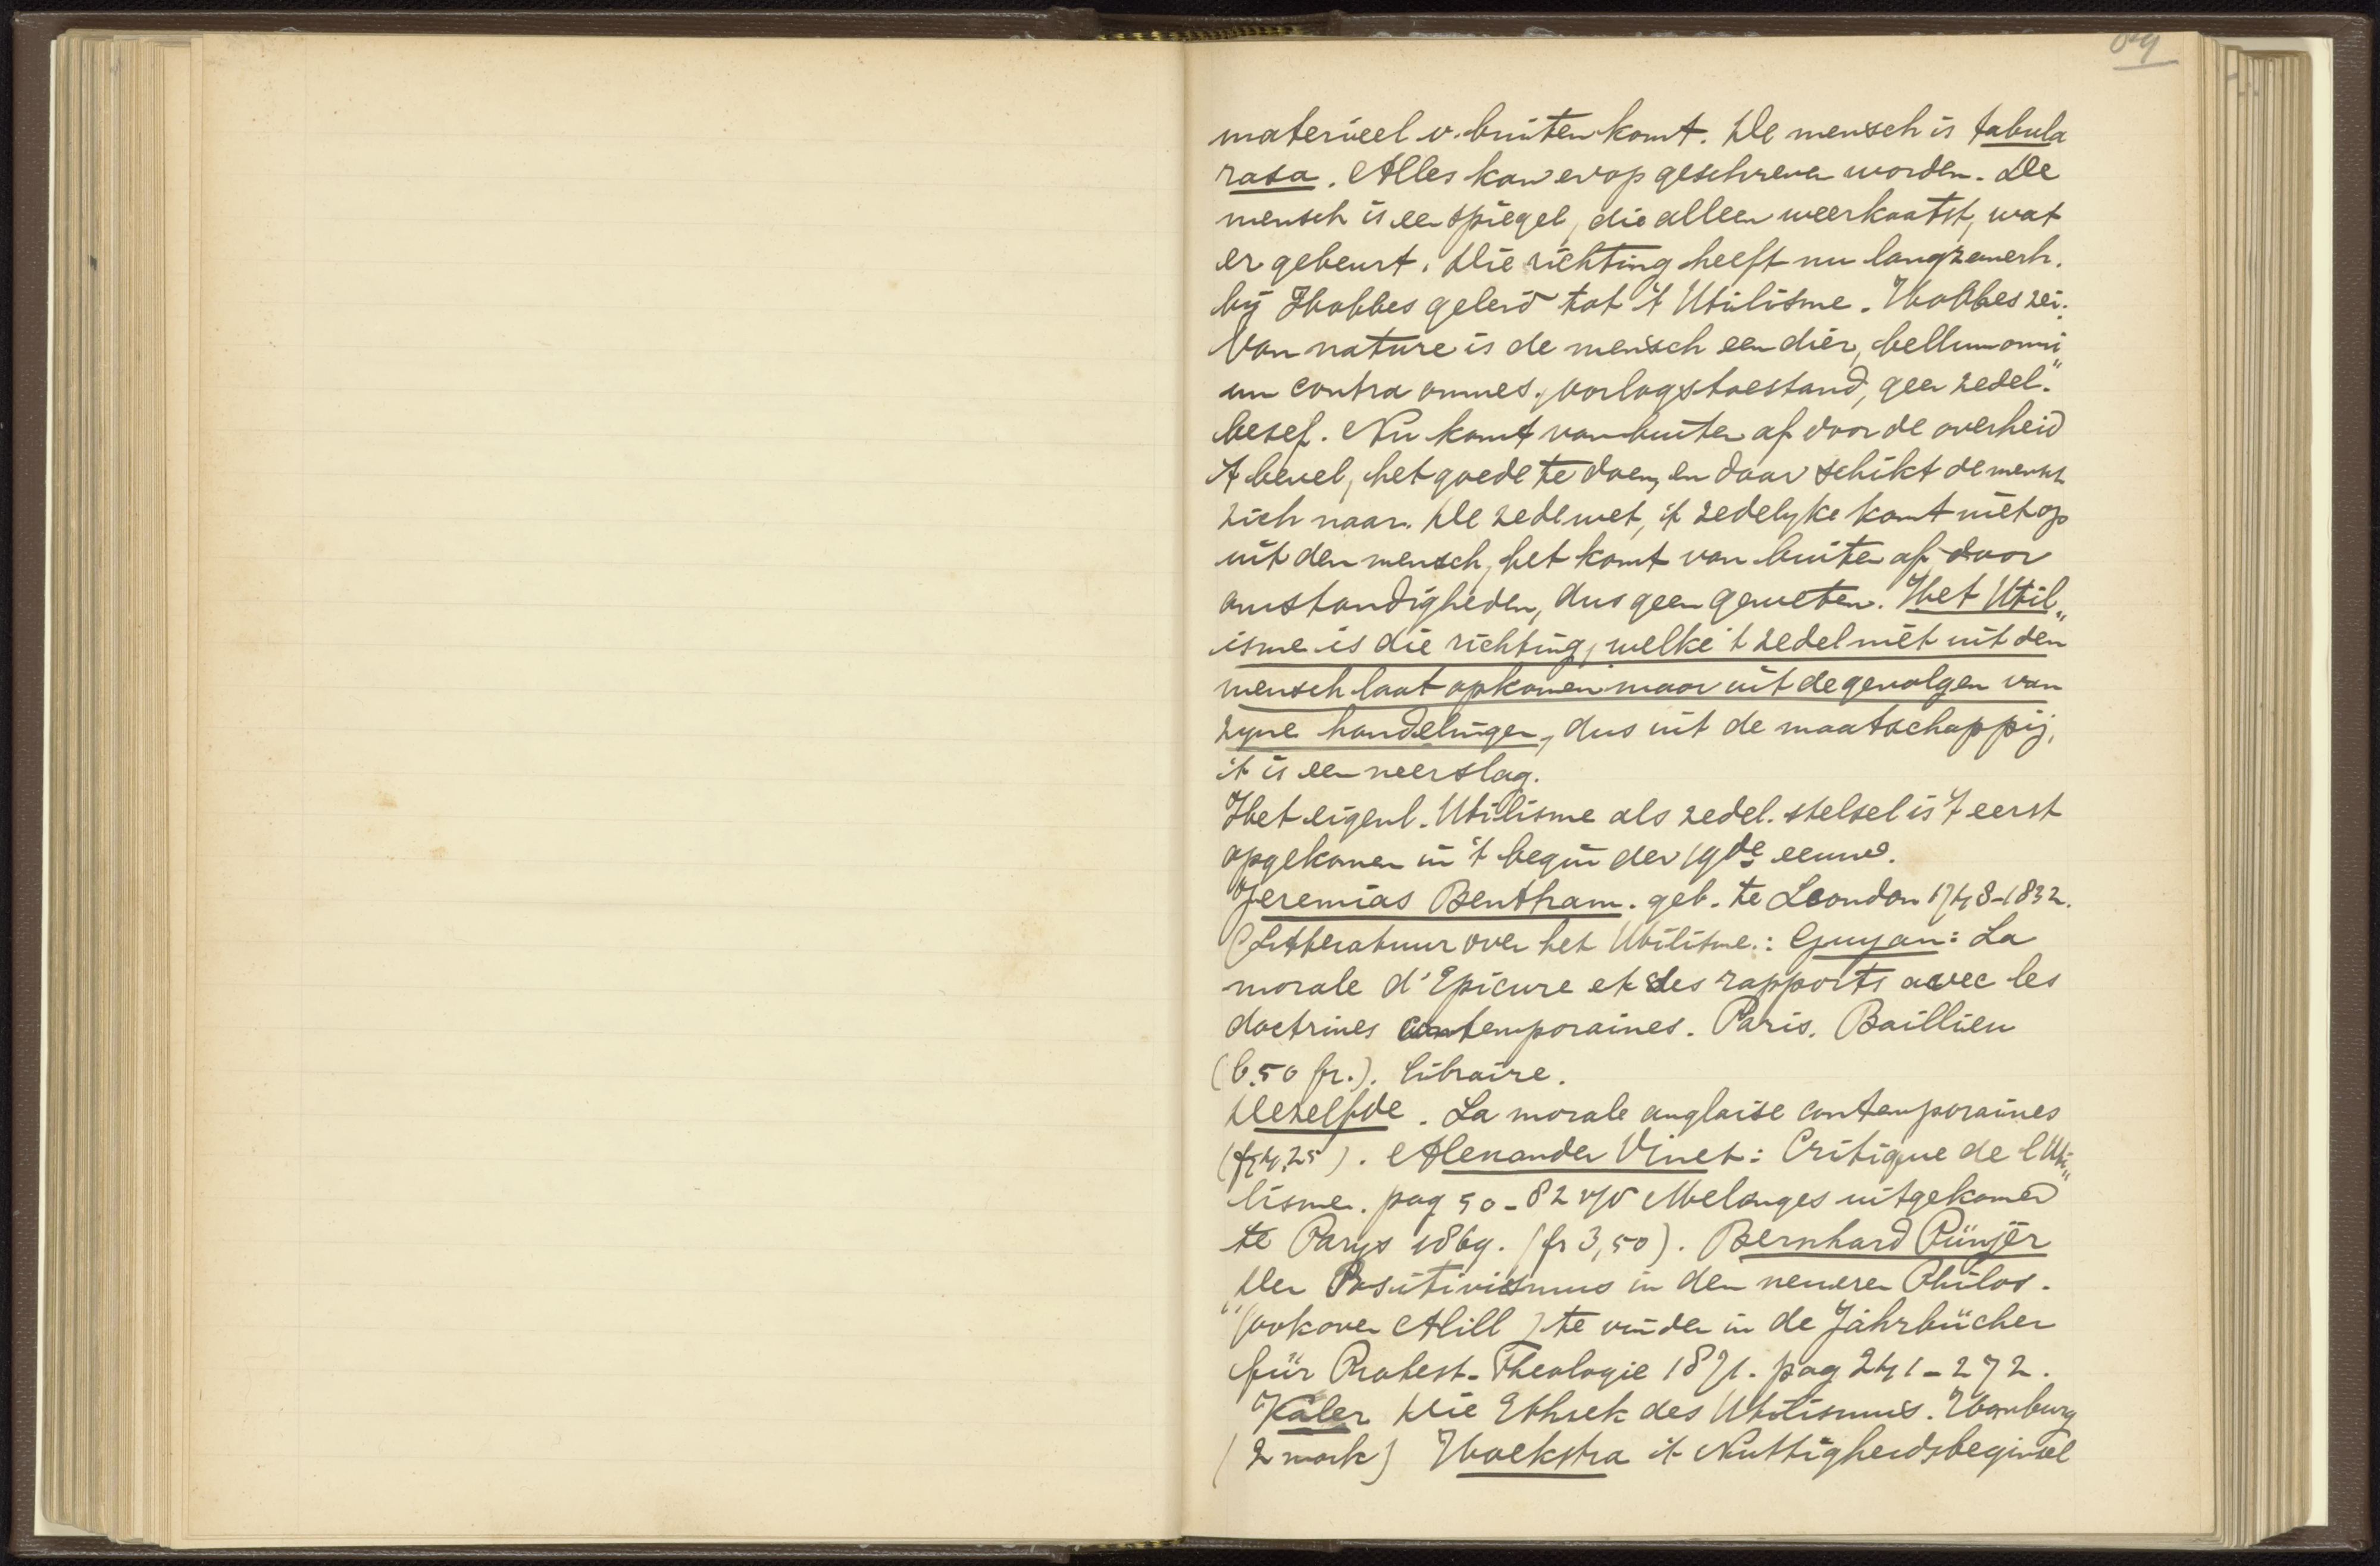 materieel v. buiten komt. De mensch is tabula
rasa. Alles kan erop geschreven worden. De
mensch is een spiegel, die alleen weerkaatst, wat
er gebeurt. Die richting heeft nu langzamerh.
bij Hobbes geleid tot 't Utilisme. Hobbes zei:
Van nature is de mensch een dier, bellum omni
um contra omnes, oorlogstoestand, geen zedel."
besef. Nu komt van buiten af door de overheid
't bevel, het goede te doen, en daar schikt de mensch
zich naar. De zedewet, 't zedelyke komt niet op
uit den mensch, het komt van buiten af door
omstandigheden, dus geen geweten. Het Util„
isme is die richting, welke 't zedel niet uit den
mensch laat opkomen maar uit de gevolgen van
zyne handelingen, dus uit de maatschappij,
't is een neerslag.
Het eigenl. Utilisme als zedel. stelsel is 't eerst
opgekomen in 't begin der 19de eeuw.
Jeremias Bentham. geb. te Loondon 1748-1832.
(Litteratuur over het Utilisme.: Guyau: La
morale d'Epicure et des rapports avec les
doctrines contemporaines. Paris. Baillieu
(6.50 fr.). libraire.
Dezelfde. La morale anglaise contemporaines
(fr 4,25). Alexander Vinet: Critique de l'Uti„
lisme. pag 50-82 v/d Melanges uitgekomen
te Parys 1869. (fr 3,50). Bernhard Pünjer
Der Positivismus in den neueren Philos.
"(ook over Mill) te vinden in de Jährbücher
für Protest. Theologie 1871. pag 241-272.
Kaler Die Ethiek des Utilismus. Hamburg
(2 mark) Hoekstra 't Nuttigheidsbeginsel